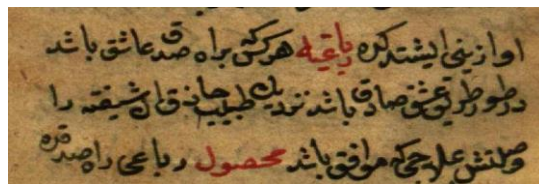 اوازینی ایشتدکده رباعیه هرکس براه صدق عاشق باشد
در طور طریق عشق صادق باشد نزدیک طبیب حاذق آن شیفته را
وصلتش علاجی که موافق باشد محصول رباعی راه صدقده